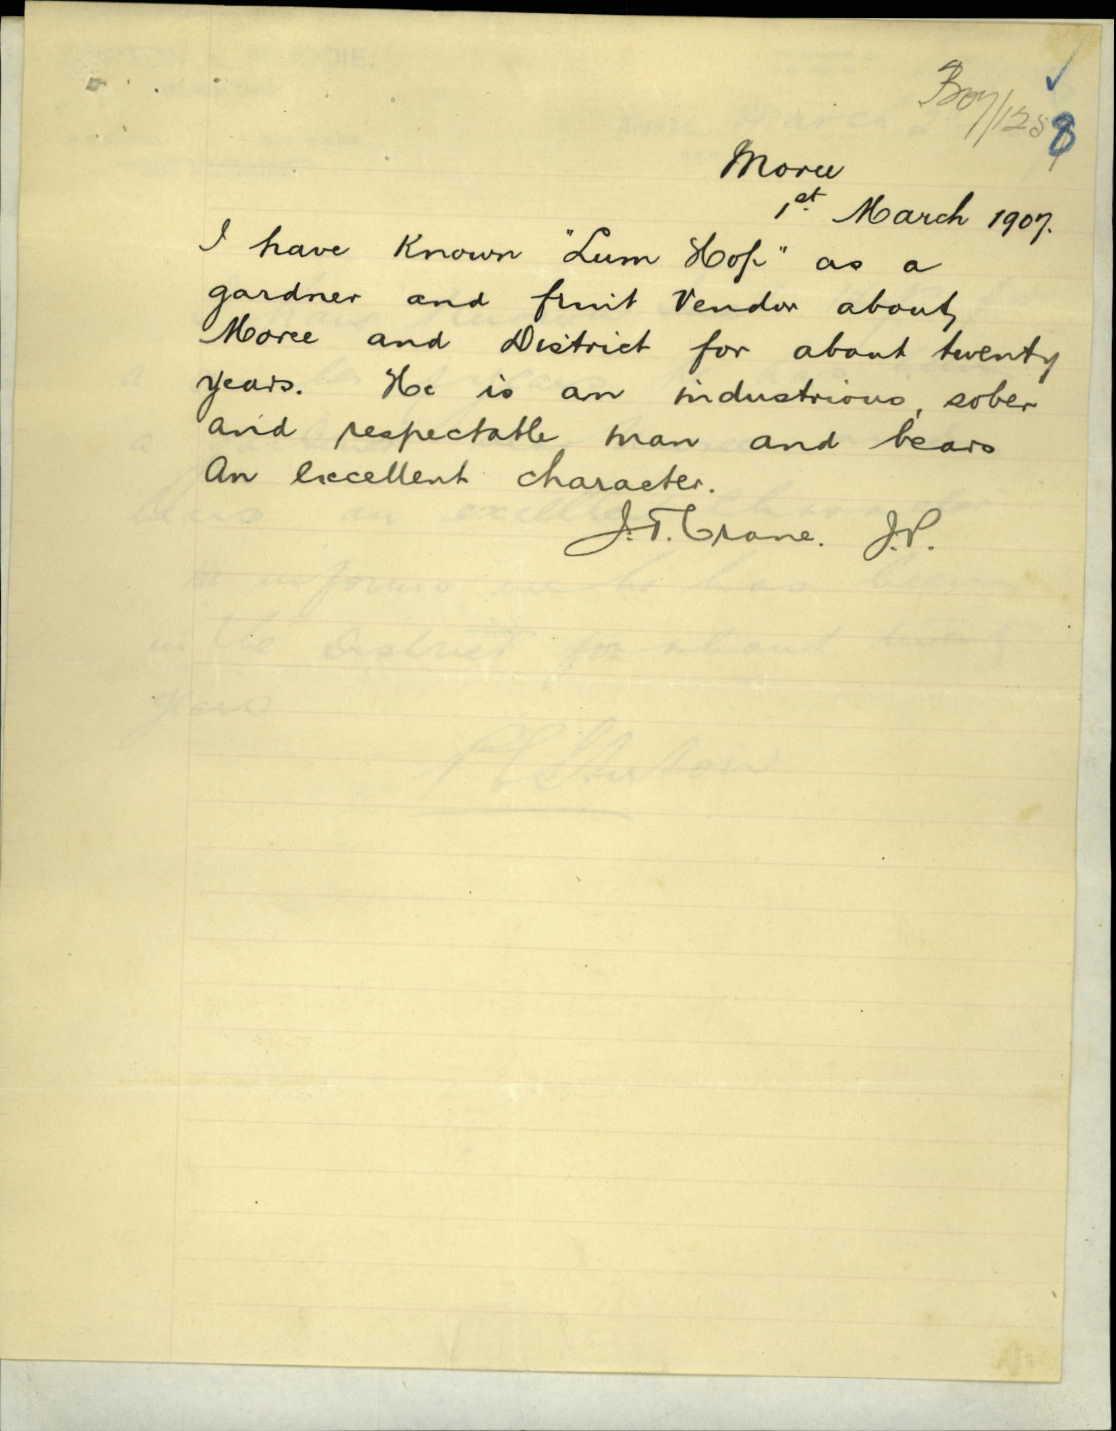 8
Moree
1st. March 1907.
I have Known "Lum Hop" as a
gardner and fruit Vendor about
Moree and District for about twenty
years. He is an industrious, sober
and respectable man and bears
An excellent character.
J.T. Crane. J.P.
in the District for about
years